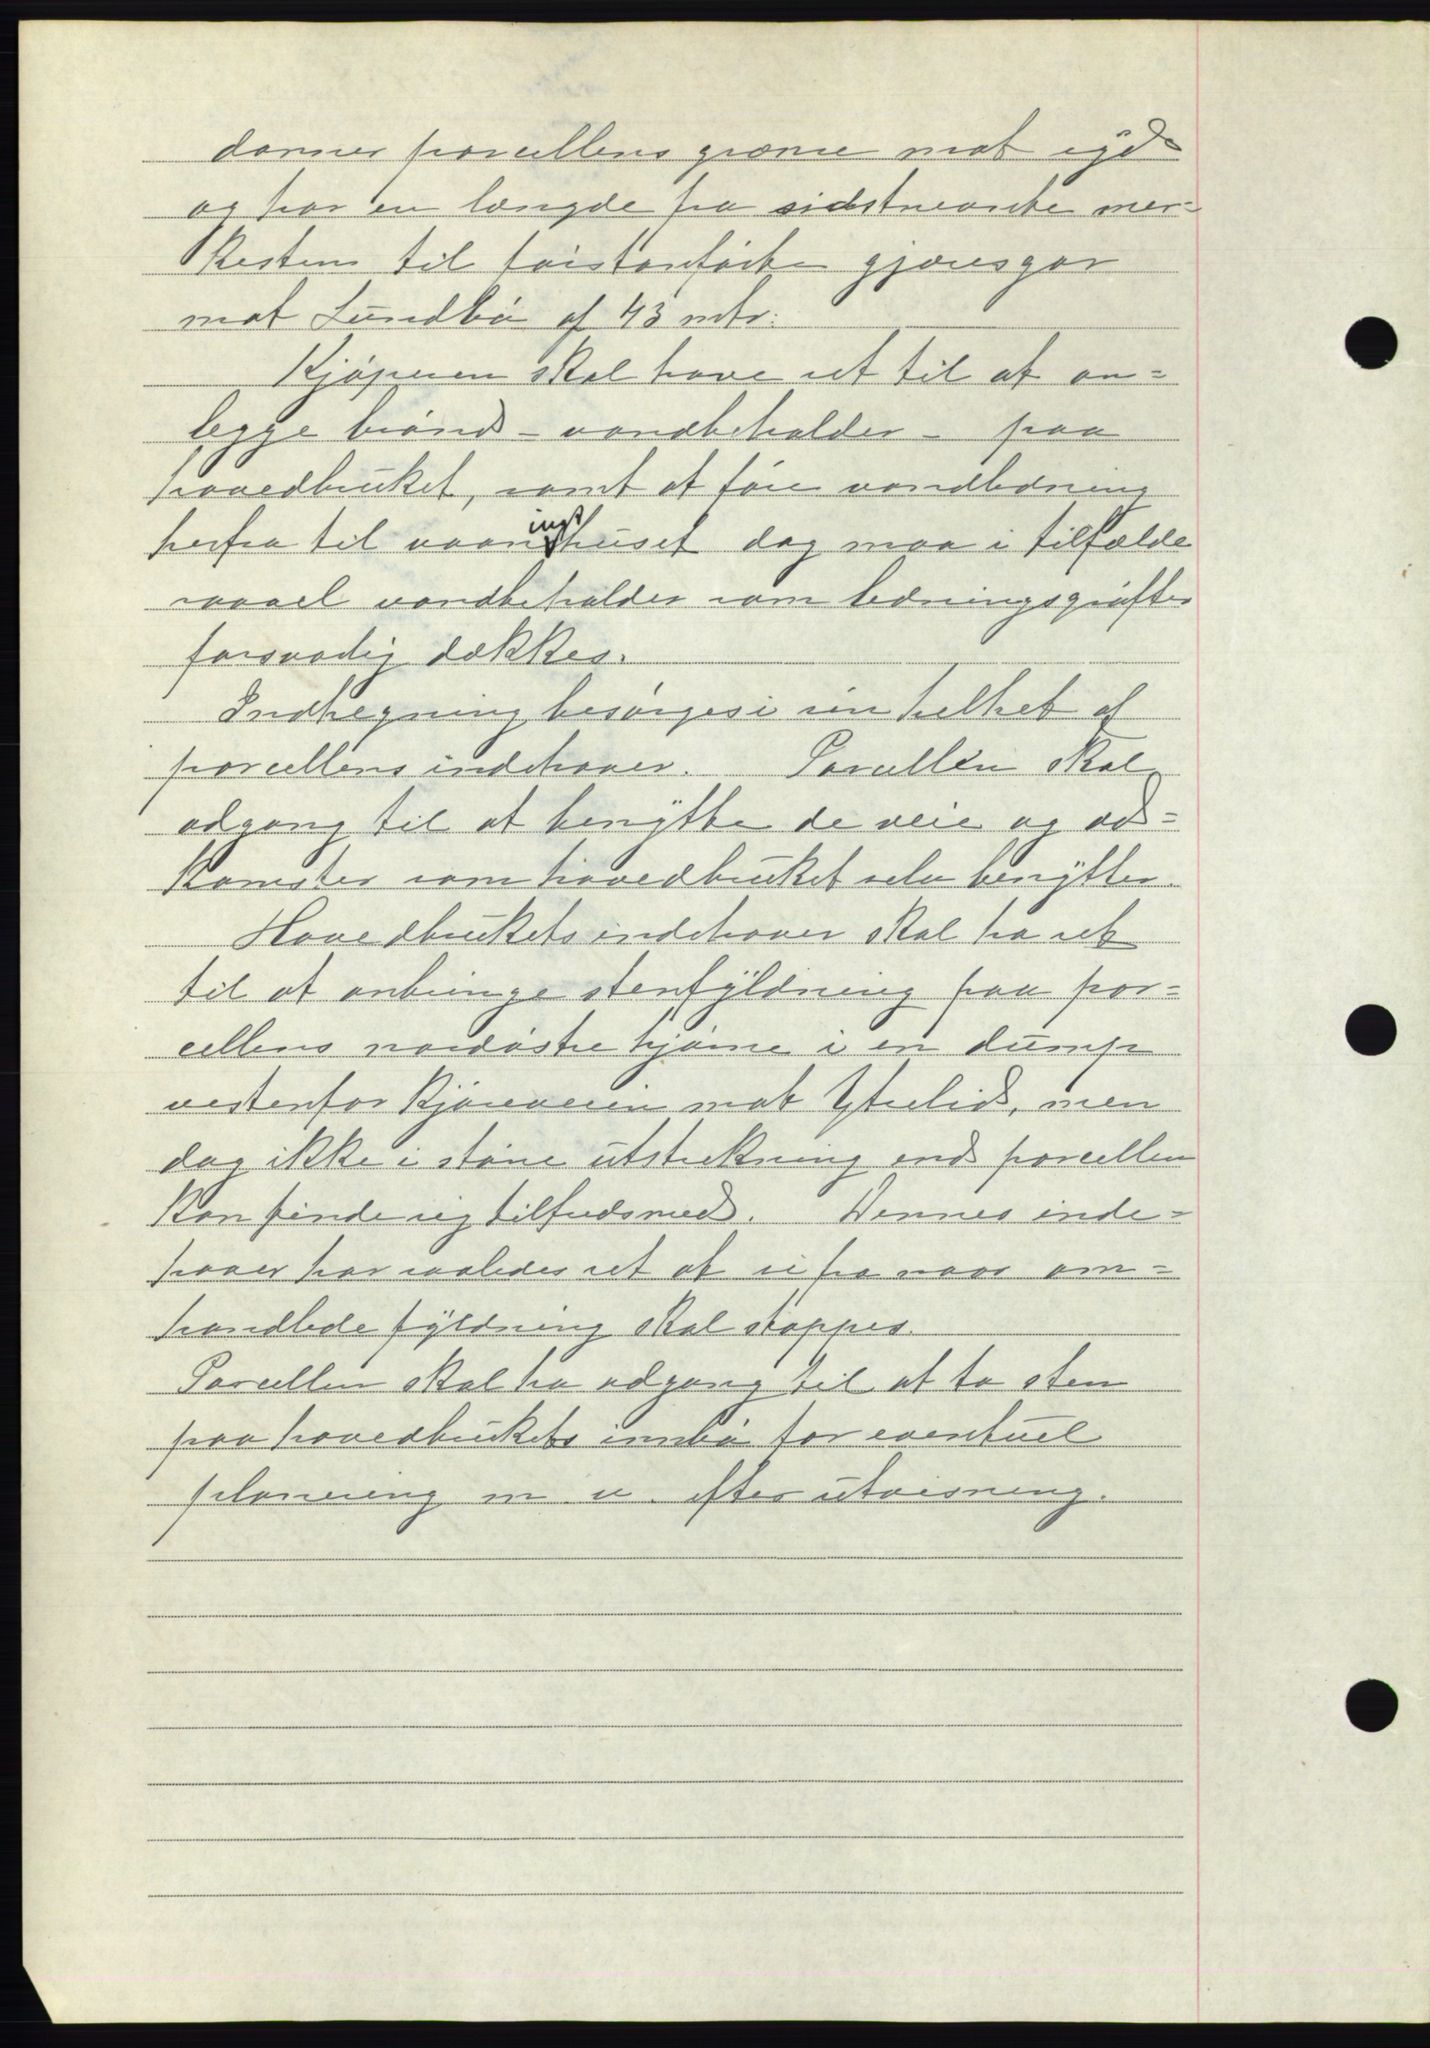 danner parcellens grænse mot syd
og har en længde fra sidstnevnte mer-
kesten til førstanførte gjærsgar
mot Lundbø af 43 mtr.
Kjøperen skal have ret til at an-
legge brønd - vandbeholder - paa
hovedbruket, samt at føre vandledning
herfra til vaaningshuset dog maa i tilfælde
saavel vandbeholder som ledningsgrøfter
forsvarlig dækkes.
Indhegning besørges i sin helhet af
parcellens indehaver. Parcellen skal
adgang til at benytte de veie og ad-
komster som hovedbruket selv benytter.
Hovedbrukets indehaver skal ha ret
til at anbringe stenfyldning paa par-
cellens nordøstre hjørne i en dump
vestenfor kjøreveien mot Ytrelid, men
dog ikke i større utstrekning end parcellen
kan finde sig tilfredsmed. Dennes inde-
haver har saaledes ret at si fra naar om-
handlede fyldning skal stoppes.
Parcellen skal ha adgang til at ta sten
paa hovedbrukets innbø for eventuel
planering m. v. efter utvisning.